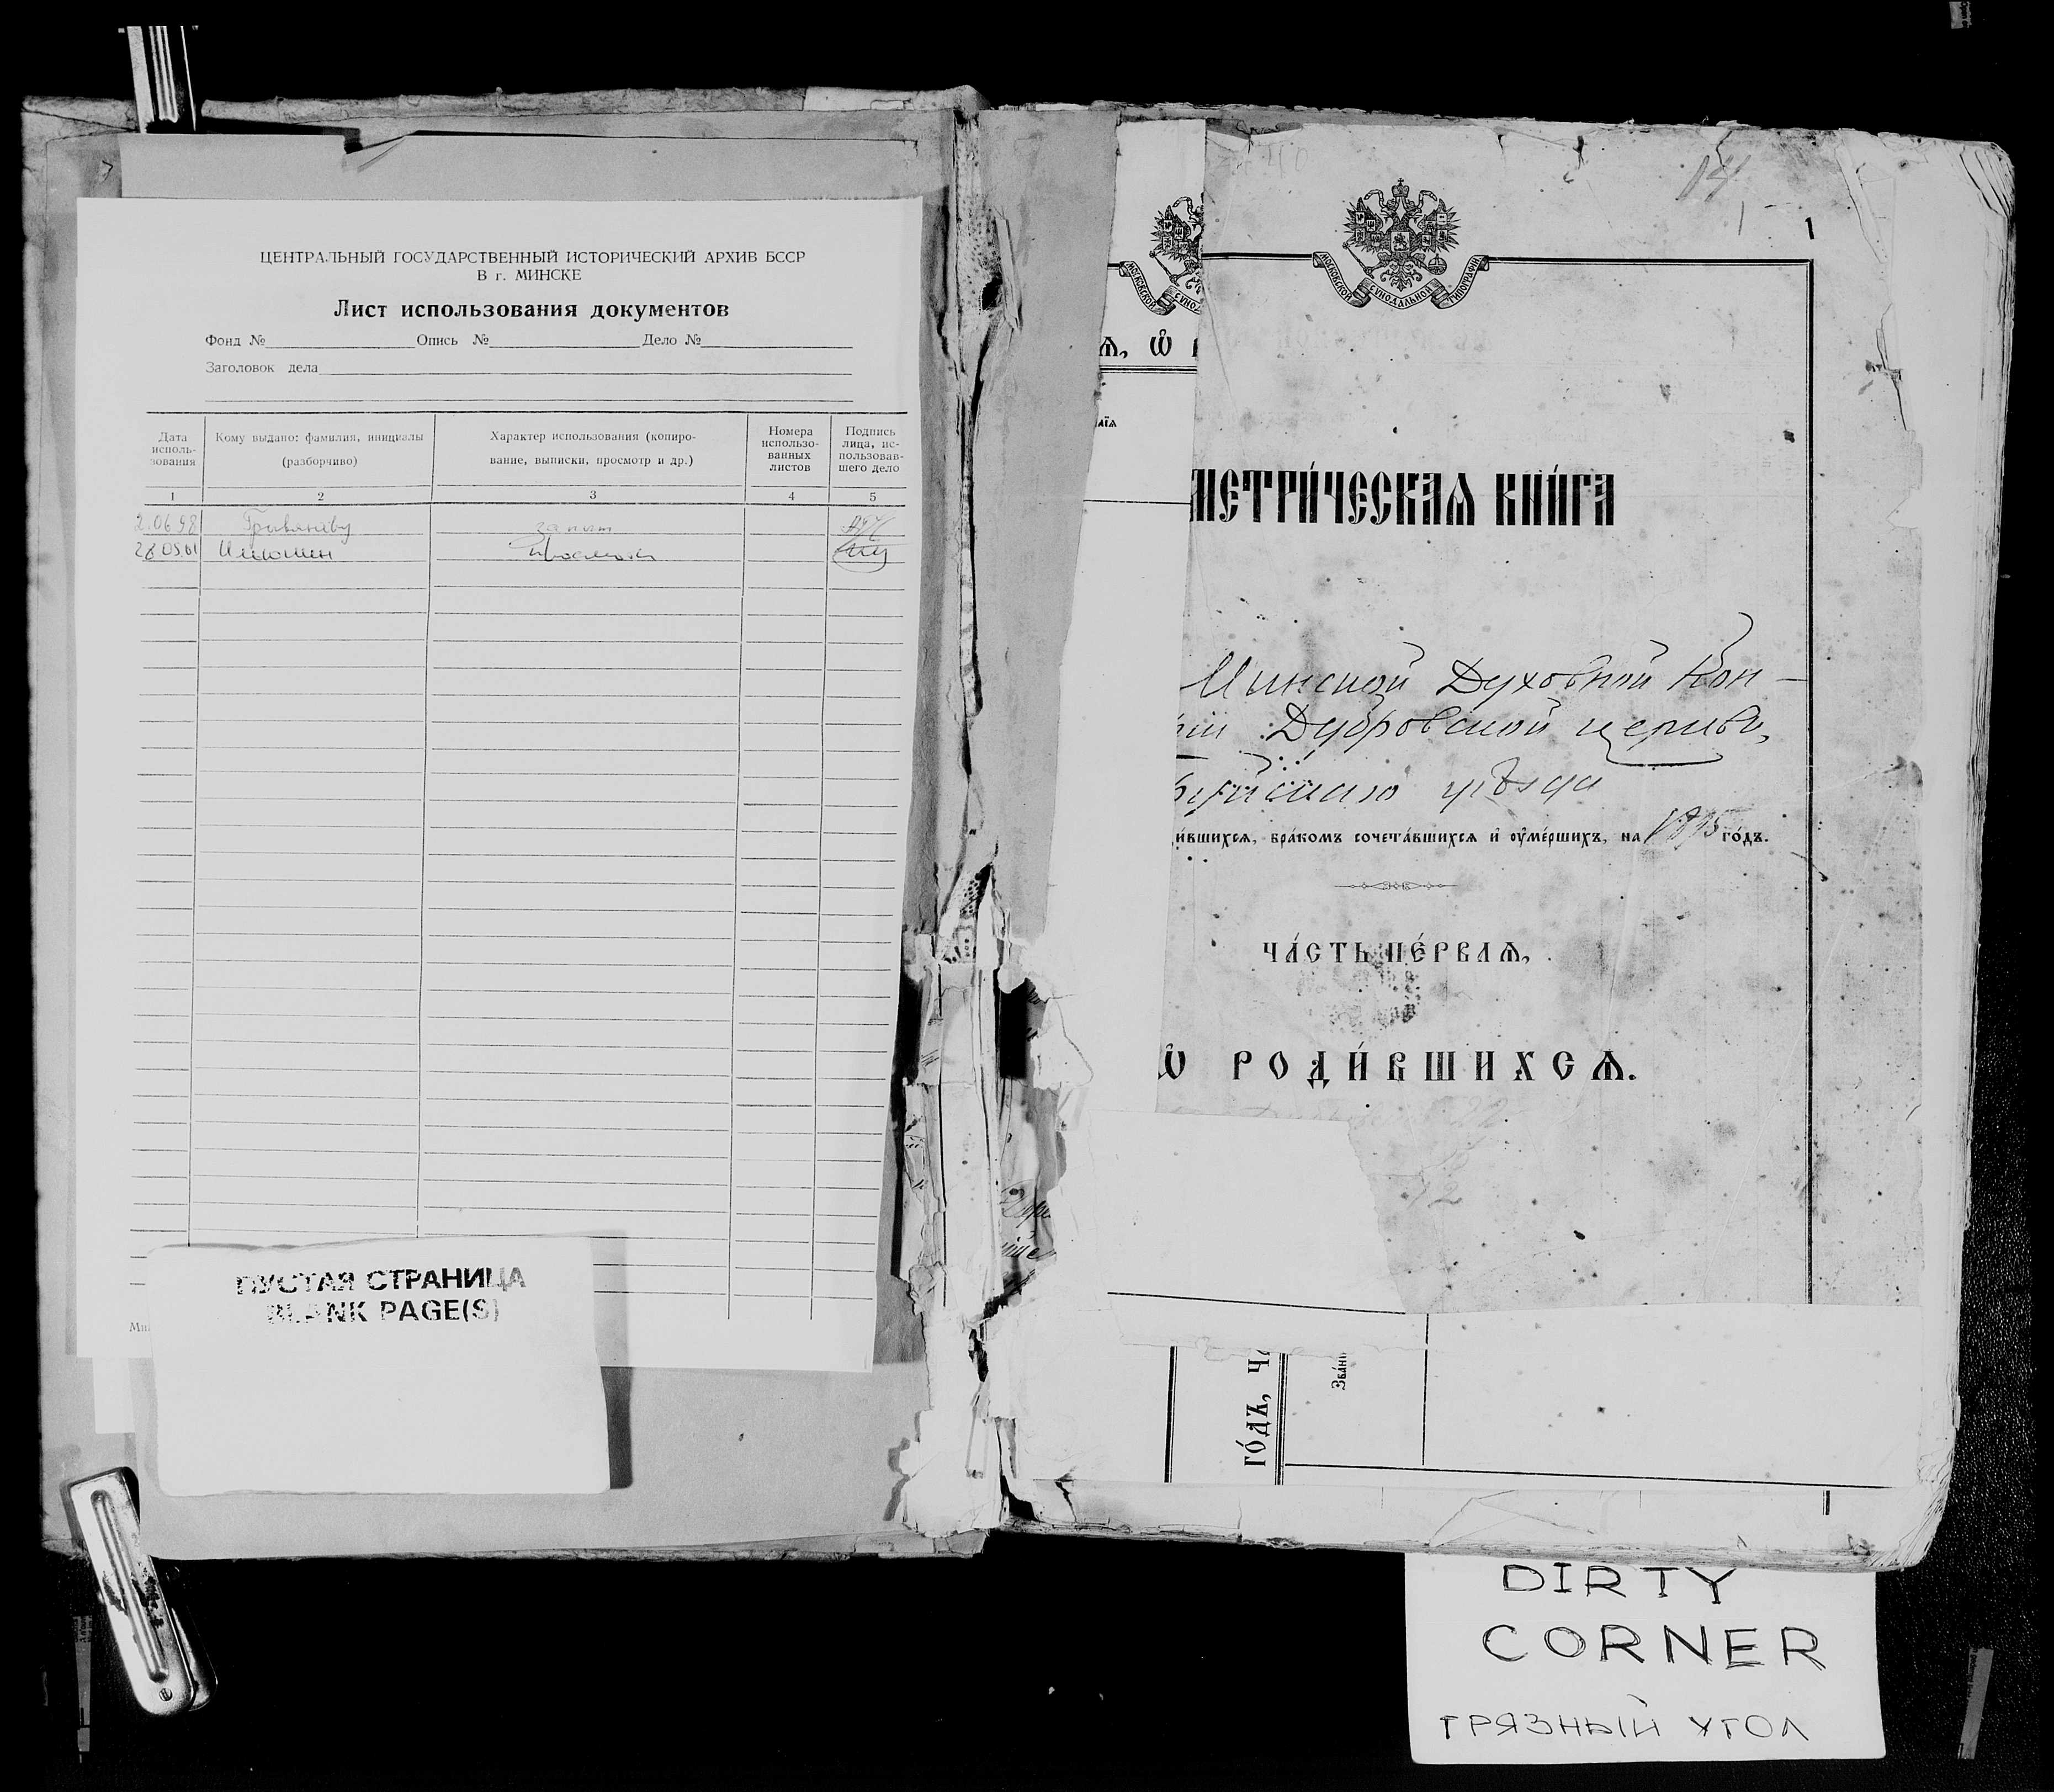 ЦЕНТРАЛЬНЫЙ ГОСУДАРСТВЕННЫЙ ИСТОРИЧЕСКИЙ АРХИВ БССР
В г. МИНСКЕ
Лист использования документов
Фонд № Опись № Дело №
Заголовок дела
Дата исполь-зования
Кому выдано: фамилия, инициалы (разборчиво)
Характер использования (копиро-вание, выписки, просмотр и др.)
Номера использо-ванных листов
Подпись лица, ис-пользовав-шего дело
1 2 3 4 5
2.06.98
28 05 01
просмотр
ПУСТАЯ СТРАНИЦА
BLANK PAGE(S)
Ми
МОСКОВСКОЙ СѴНОДАЛЬНОЙ ТИПОГРАФІИ
1
ѧ, Ѽ
МЕТРИ́ЧЕСКАѦ КНИ́ГА
Минской Духовной Кон-
рiи Дубровской церкви,
уѣзда
и́вшихсѧ, бра́комъ сочета́вшихсѧ и҆ оу҆ме́ршихъ, на 1895 го́дъ.
ЧА́СТЬ ПЕ́РВАѦ,
Ѽ РОДИ́ВШИХСѦ.
ГО́ДЪ, ЧА
Зва́нi
DIRTY
CORNER
ГРЯЗНЫЙ УГОЛ